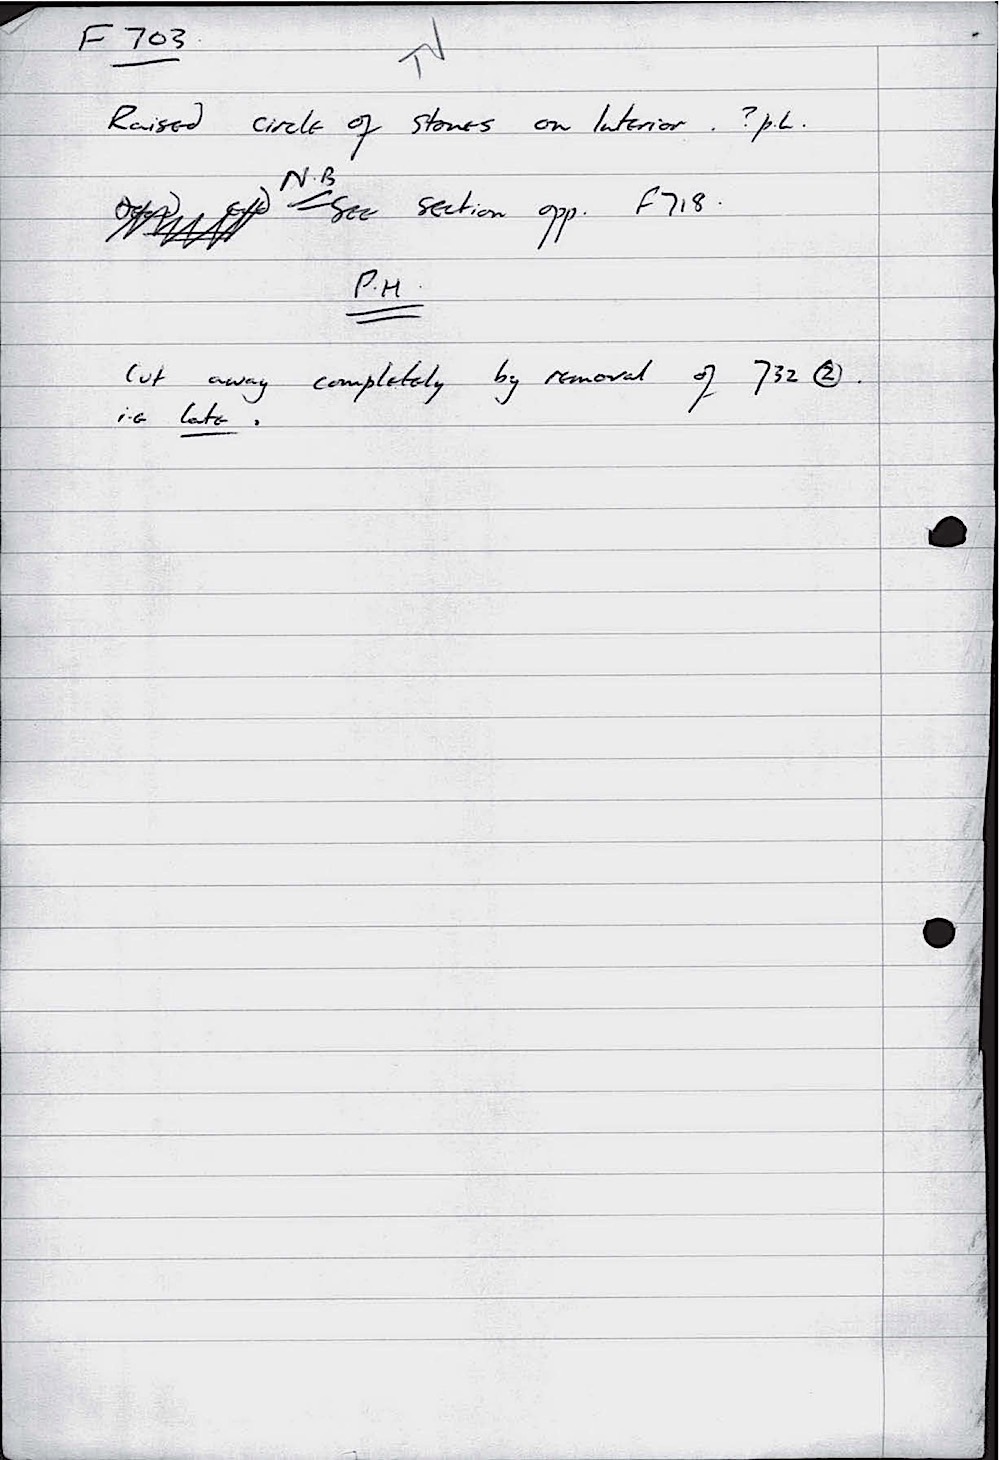 F 703.
Raised circle of stones on Interior. ? p.h.
N.B
See section opp. F718.
P.H.
Cut away completely by removal of 732 ②.
i.e late.